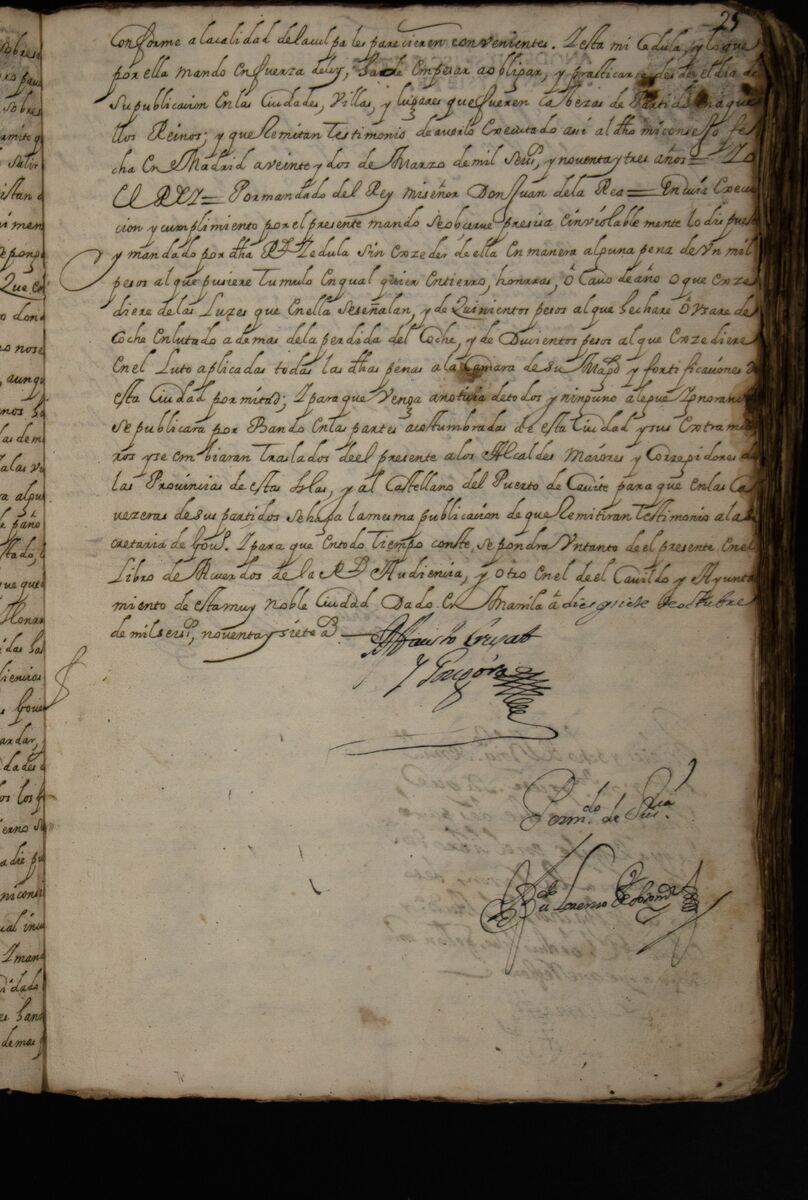 25
conforme a la calidad de la culpa les parecieren convenientes. Y esta mi Cedula, y lo que
por ella mando en fuerza de ley, ha de empesar a obligar, y practicarse desde el dia de
su publicacion en las Ciudades, Villas, y lugares que fueren Cabezas de Partido en aque
llos Reinos; y que Remitan Testimonio de averlo executado assi al dho mi consejo fe
cha en Madrid a veinte y dos de Marzo de mil seisº, y noventa y tres años = Yo
El REY = Por mandado del Rey mi señor Don Juan de la Rea = En cuia execu
cion y cumplimiento por el presente mando se observe presisa e inviolable mente lo dispuesto
y mandado por dha Rl Zedula sin exzeder de ella en manera alguna pena de Un mil
pesos al que pusiere Tumulo en qual quier entierro, honrras, ô Cavo de año o que exze
diere de las Luzes que en ella se señalan, y de Quinientos pesos al que hechare ô Usare de
Coche enlutado a demas de la perdida del Coche, y de Ducientos pesos al que exzediere
en el Luto aplicadas todas las dhas penas a la Camara de su Magd y fortificaciones de
esta Ciudad por mitad; Y para que Venga a noticia de todos y ninguno alegue Ygnorancia
se publicara por Bando en las partes acostumbradas de esta Ciudad y sus extramu
ros y se embiaran Traslados de el presente a los Alcaldes Maiores y Corregidores de
las Provincias de estas Islas, y al Castellano del Puerto de Cavite para que en las Ca
vezeras de sus partidos se haga la misma publicacion de que Remitiran Testimonio a la Se
cretaria de Govº. Y para que en todo Tiempo conste, se pondra Un tanto de el presente en el
Libro de Acuerdos de la Rl Audiencia, y otro en el de el Cavildo y Ayunta
miento de esta muy noble Ciudad Dado en Manila â dies y siete de octubre
de mil seisº, noventa y siete aº
Dn Fausto Cruzat
y Gongora
Por mdo de su Sria
Lorenzo